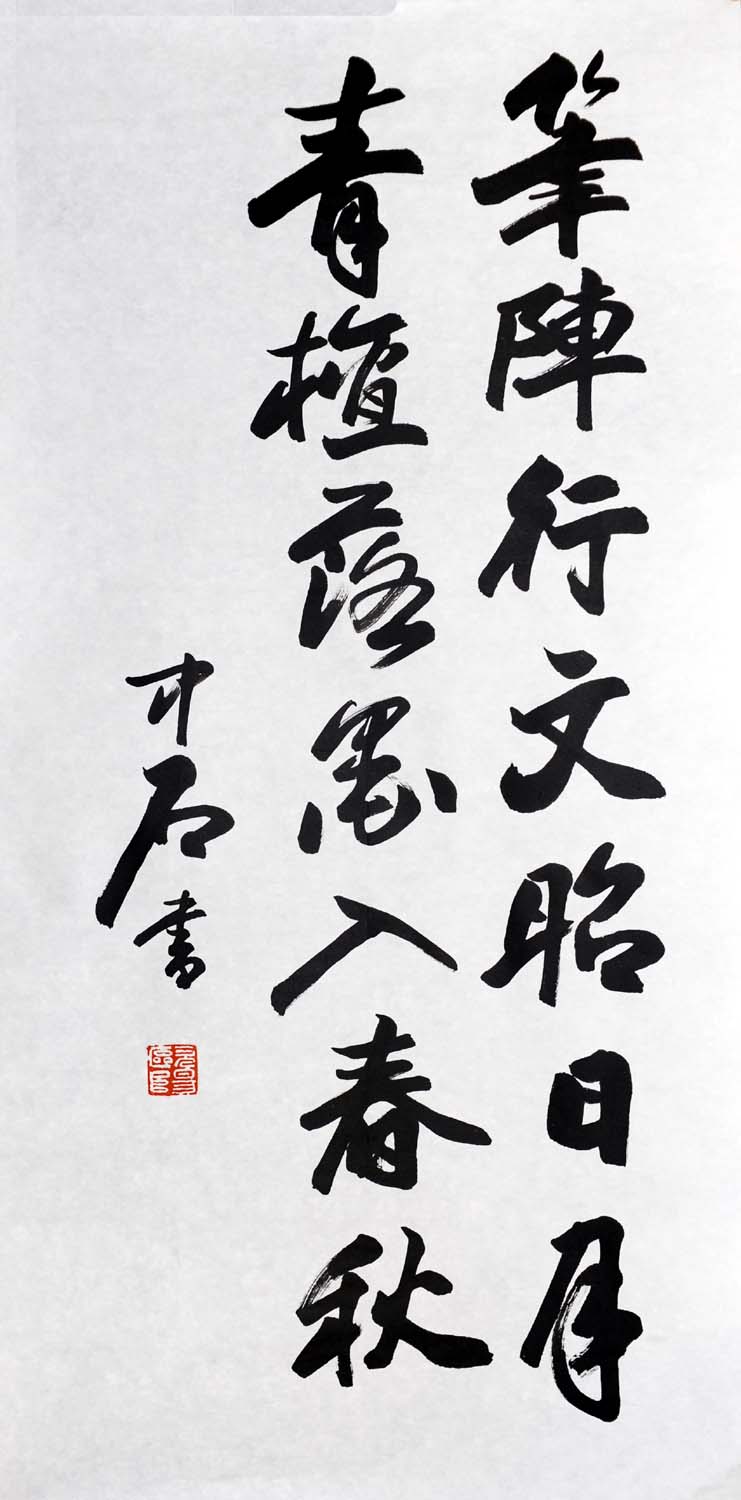 筆陣行文昭日月
青檀落墨入春秋
中石書